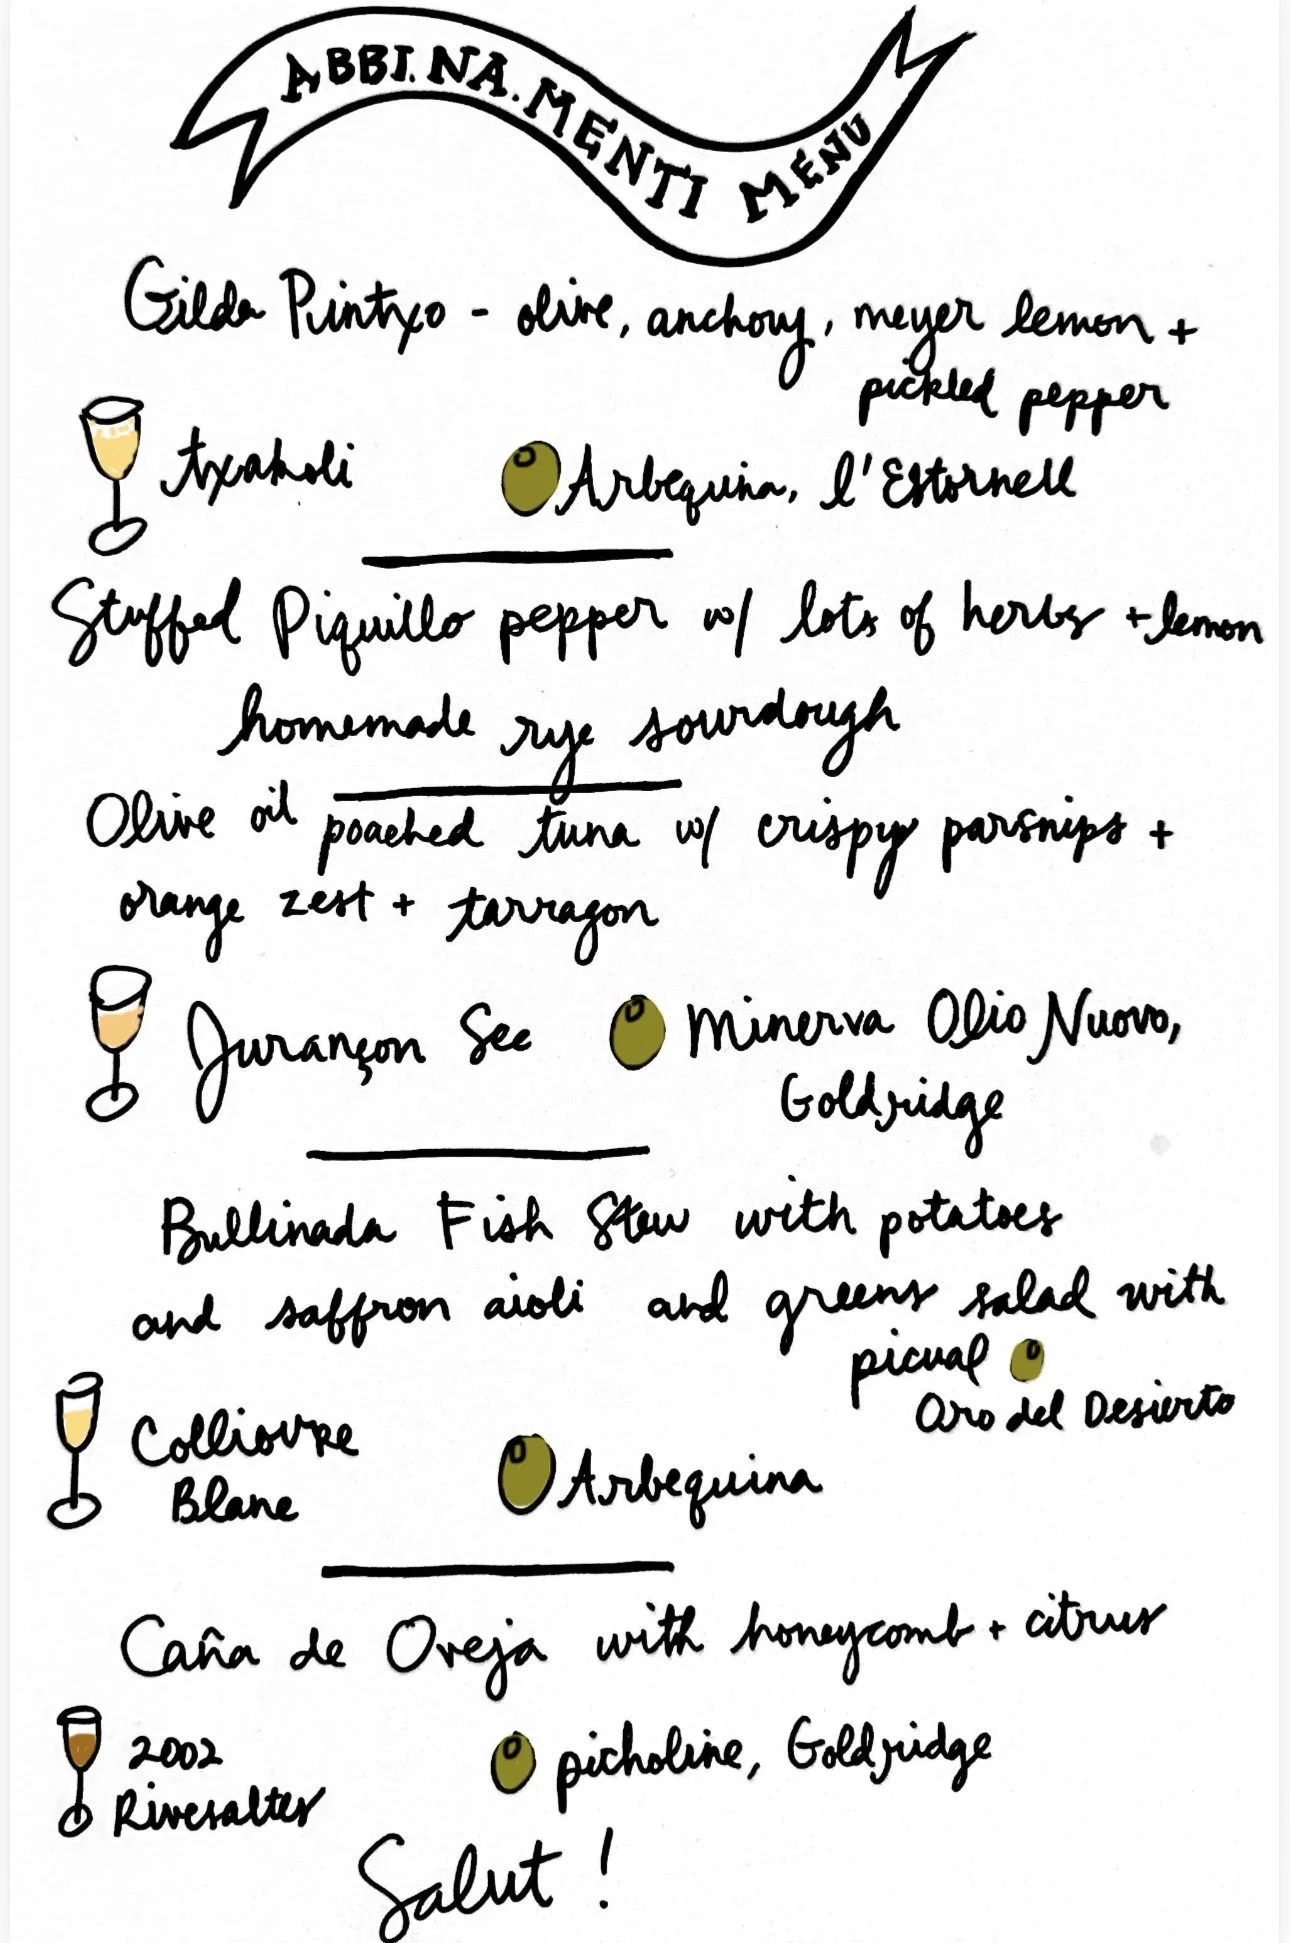 ABBI.NA.MENTI MENU
Gilda Pintxo - olive, anchovy, meyer lemon +
pickled pepper
txakoli
Arbequina, l'Estornell
Stuffed Piquillo pepper w/ lots of herbs + lemon
homemade rye sourdough
Olive oil poached tuna w/ crispy parsnips +
orange zest + tarragon
Jurançon Sec
Minerva Olio Nuovo,
Goldridge
Bullinada Fish Stew with potatoes
and saffron aioli and greens salad with
picual
Oro del Desierto
Collioure
Blanc
Arbequina
Caña de Oveja with honeycomb + citrus
2002
Rivesaltes
picholine, Goldridge
Salut!